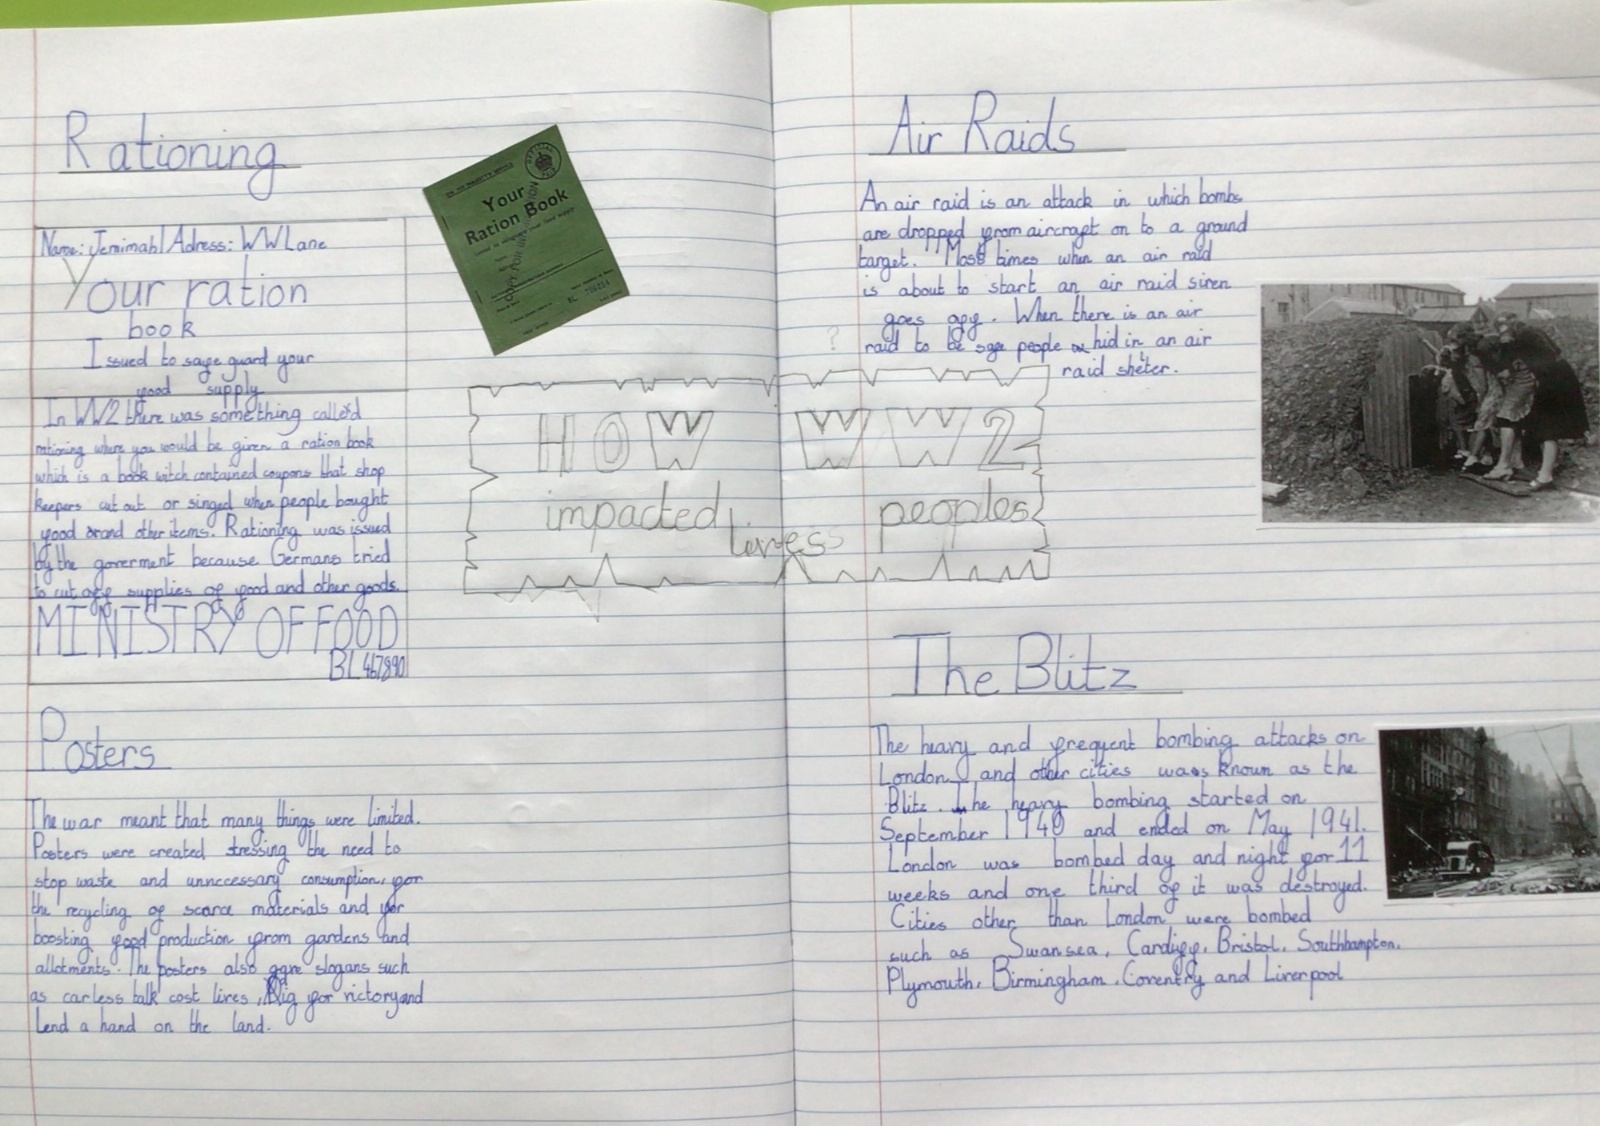 Rationing
Name: Jemimah Adress: WW Lane
Your ration
book
Issued to safe guard your
food supply
In WW2 there was something called
rationing where you would be given a ration book
which is a book witch contained coupons that shop
keepers cut out or singed when people bought
food and other items. Rationing was issued
by the goverment because Germans tried
to cut off supplies of food and other goods.
MINISTRY OF FOOD
BL 467890
Your
Ration Book
Posters
The war meant that many things were limited.
Posters were created stressing the need to
stop waste and unnccessary consumption, for
the recycling of scarce materials and for
boosting food production from gardens and
allotments. The posters also gave slogans such
as carless talk cost lives, Dig for victory and
Lend a hand on the land.
HOW WW2
impacted peoples
lives
Air Raids
An air raid is an attack in which bombs
are dropped from aircraft on to a ground
target. Most times when an air raid
is about to start an air raid siren
goes off. When there is an air
? raid to be safe people hid in an air
raid shelter.
The Blitz
The heavy and frequent bombing attacks on
London and other cities was known as the
Blitz. The heavy bombing started on
September 1940 and ended on May 1941.
London was bombed day and night for 11
weeks and one third of it was destroyed.
Cities other than London were bombed
such as Swansea, Cardiff, Bristol, Southhampton,
Plymouth, Birmingham, Coventry and Liverpool